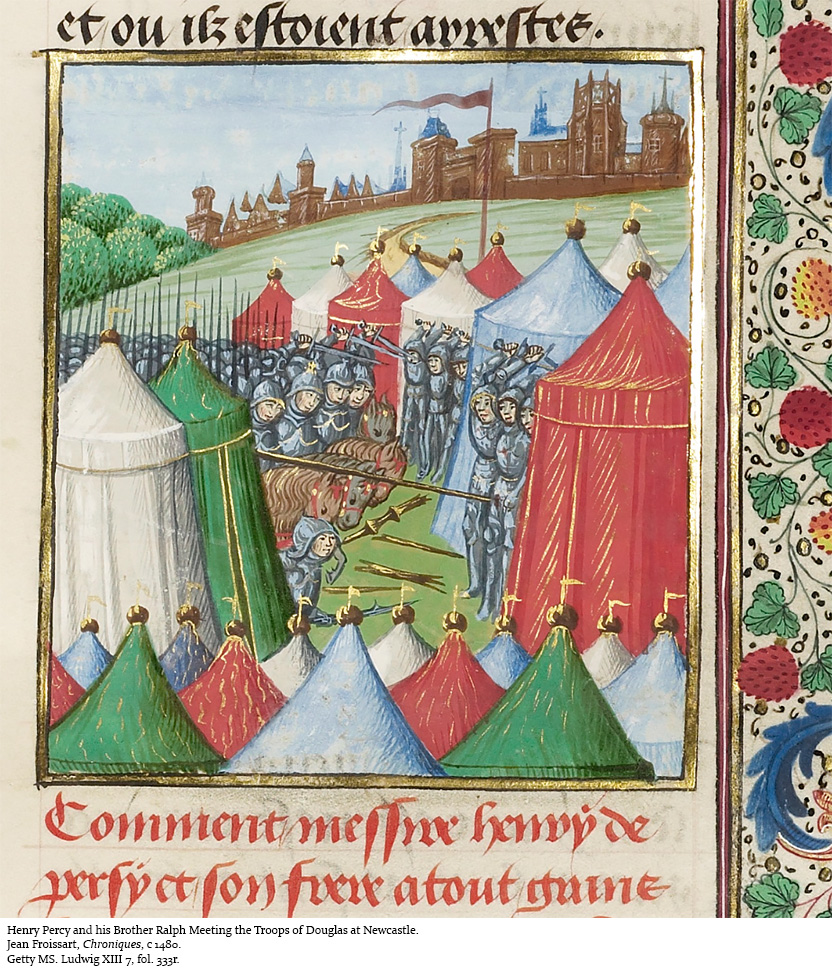 et ou ilz estoient arrestes.
Comment messire henry de
persy et son frere atout grant
Henry Percy and his Brother Ralph Meeting the Troops of Douglas at Newcastle.
Jean Froissart, Chroniques, c 1480.
Getty MS. Ludwig XIII 7, fol. 333r.